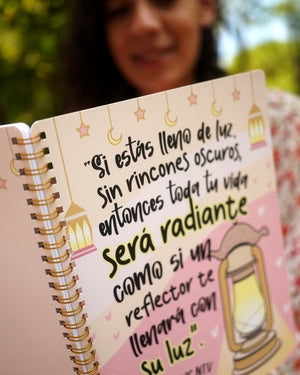 "Si estás lleno de luz,
sin rincones oscuros,
entonces toda tu vida
será radiante
como si un
reflector te
llenará con
su luz".